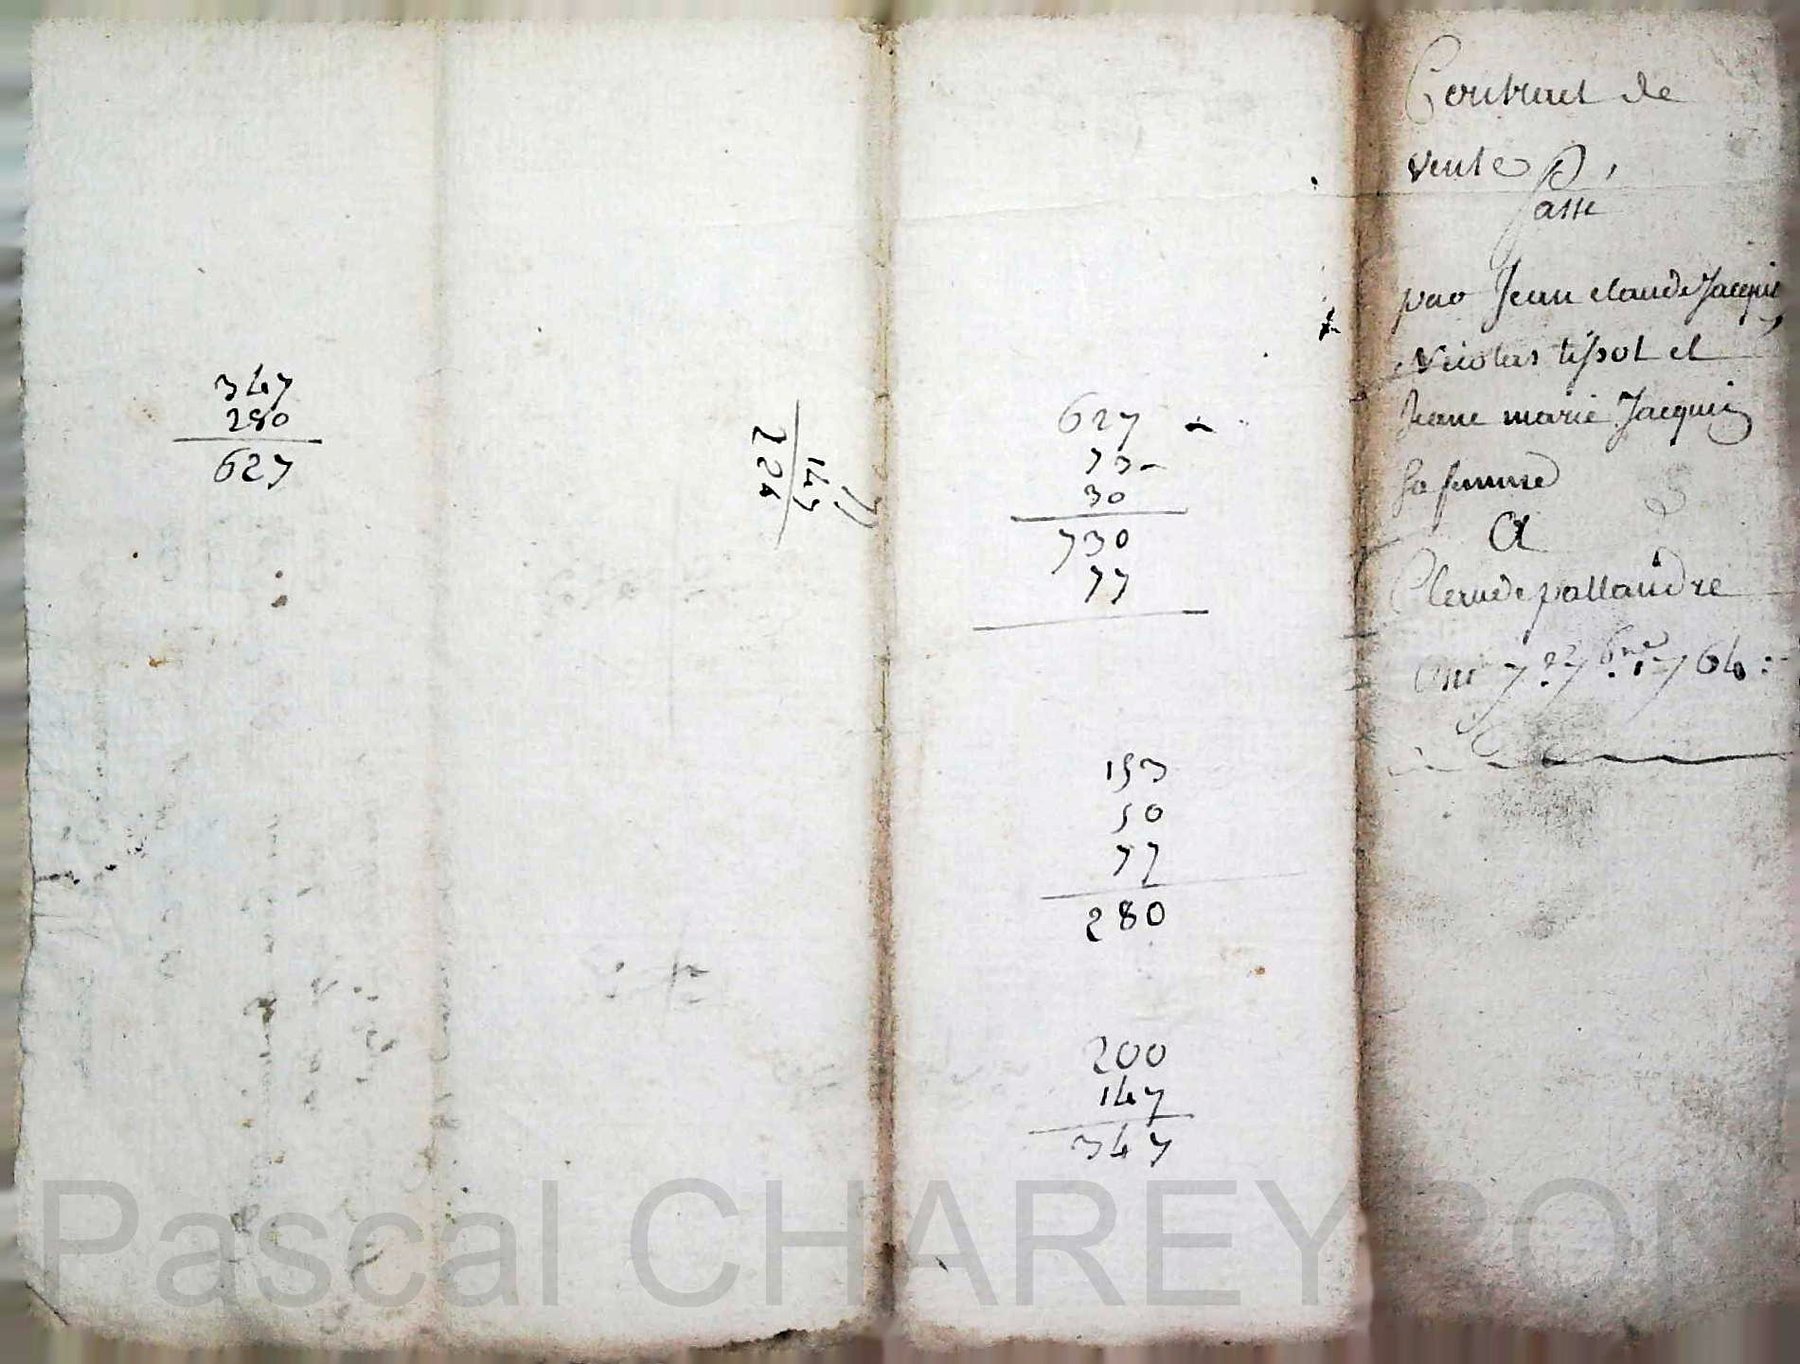 347
280
627
147
77
224
627
73
30
730
77
153
50
77
280
200
147
347
Contract de
vente
Passé
par Jean claude Jacquin
Nicolas tissot et
Jeane marie Jacquin
sa femme
A
Claude pallandre
7 1764
Pascal CHAREYRON